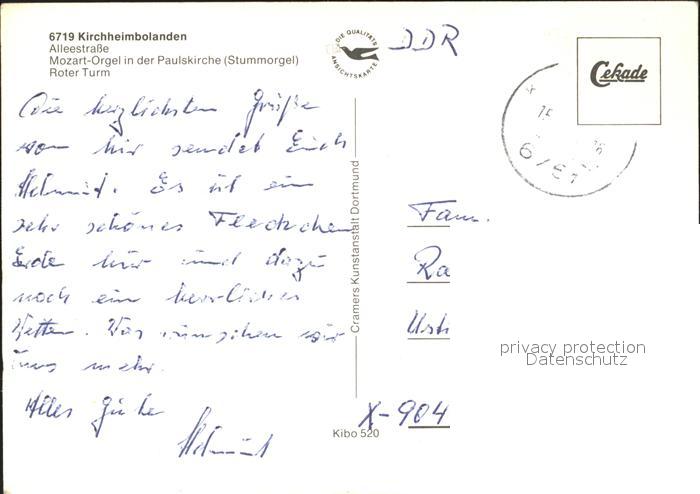 6719 Kirchheimbolanden
Alleestraße
Mozart-Orgel in der Paulskirche (Stummorgel)
Roter Turm
DIE QUALITÄTS
ANSICHTSKARTE
DDR
Cekade
Die herzlichsten Grüße
von hir sendet Euch
Helmut. Es ist ein
sehr schönes Fleckchen
Erde hir und dazu
noch ein herrliches
Wetter. Was wünschen wir
uns mehr.
Alles Gute
Helmut
Cramers Kunstanstalt Dortmund
Kibo 520
Fam.
Ra
X-904
privacy protection
Datenschutz